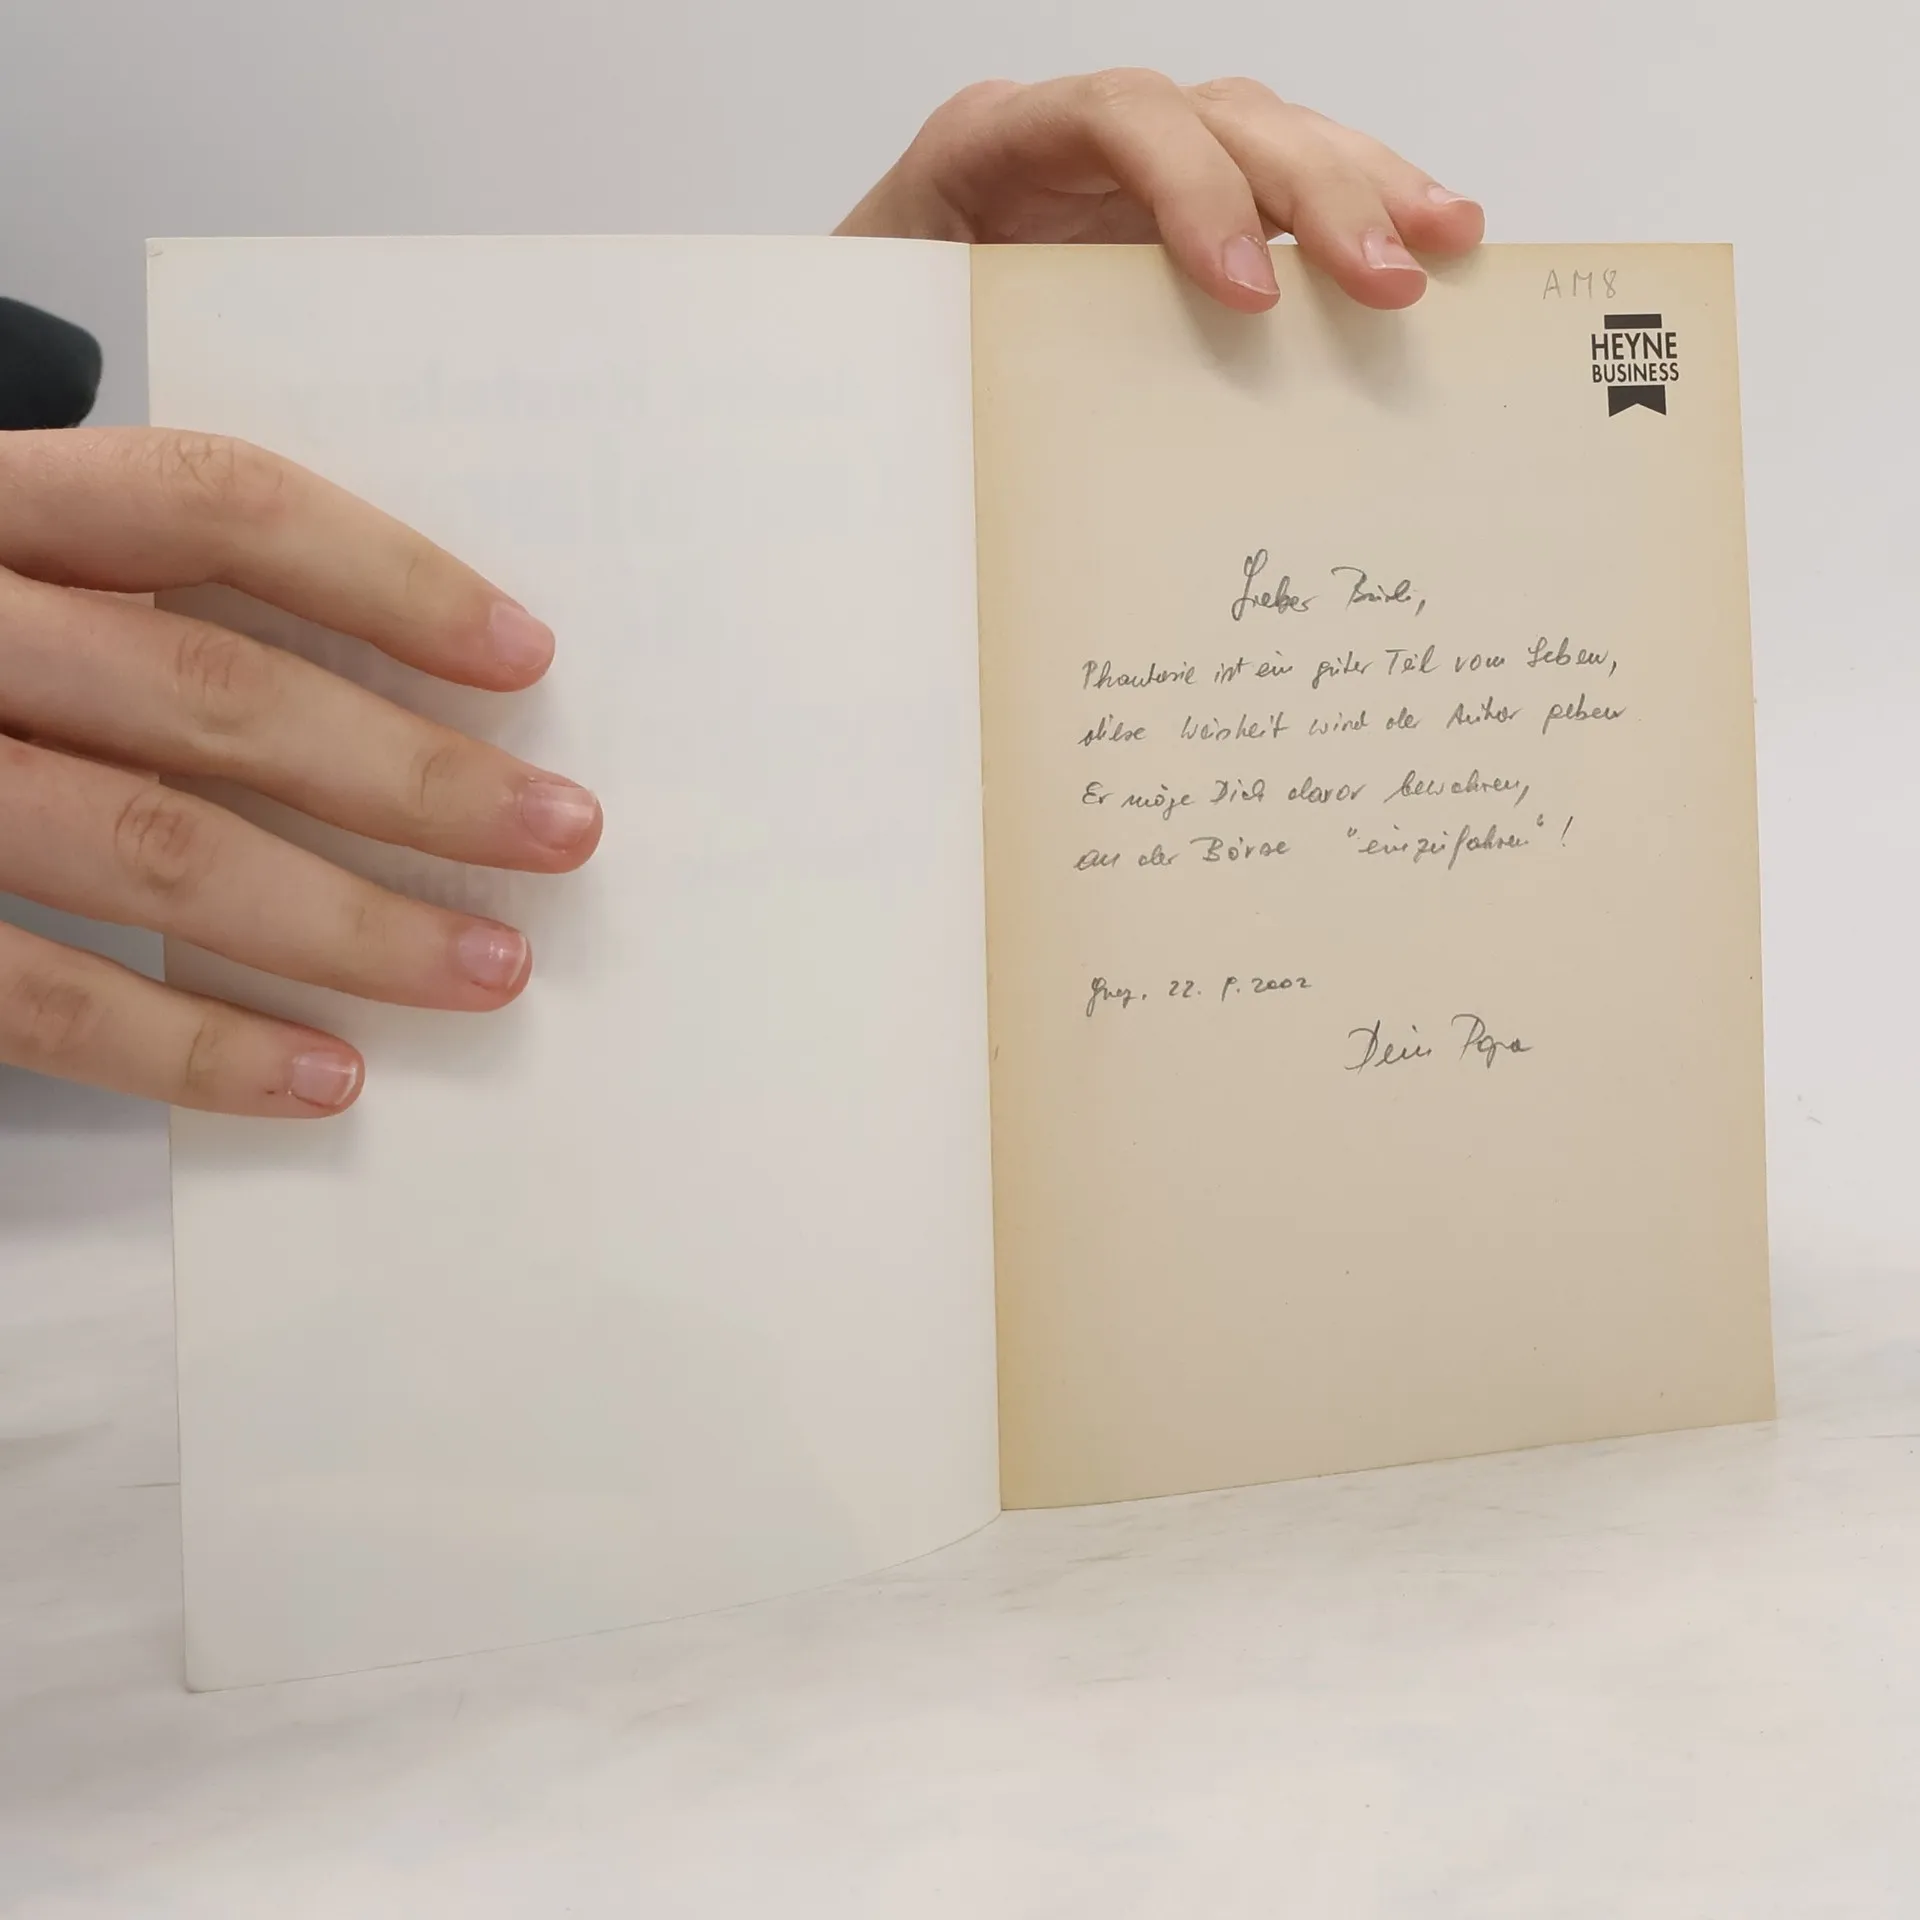 AM8
HEYNE
BUSINESS
Lieber Bürli,
Phantasie ist ein guter Teil vom Leben,
diese Weisheit wird der Autor geben
Er möge Dich davor bewahren,
an der Börse "einzufahren"!
22. 2002
Dein Papa